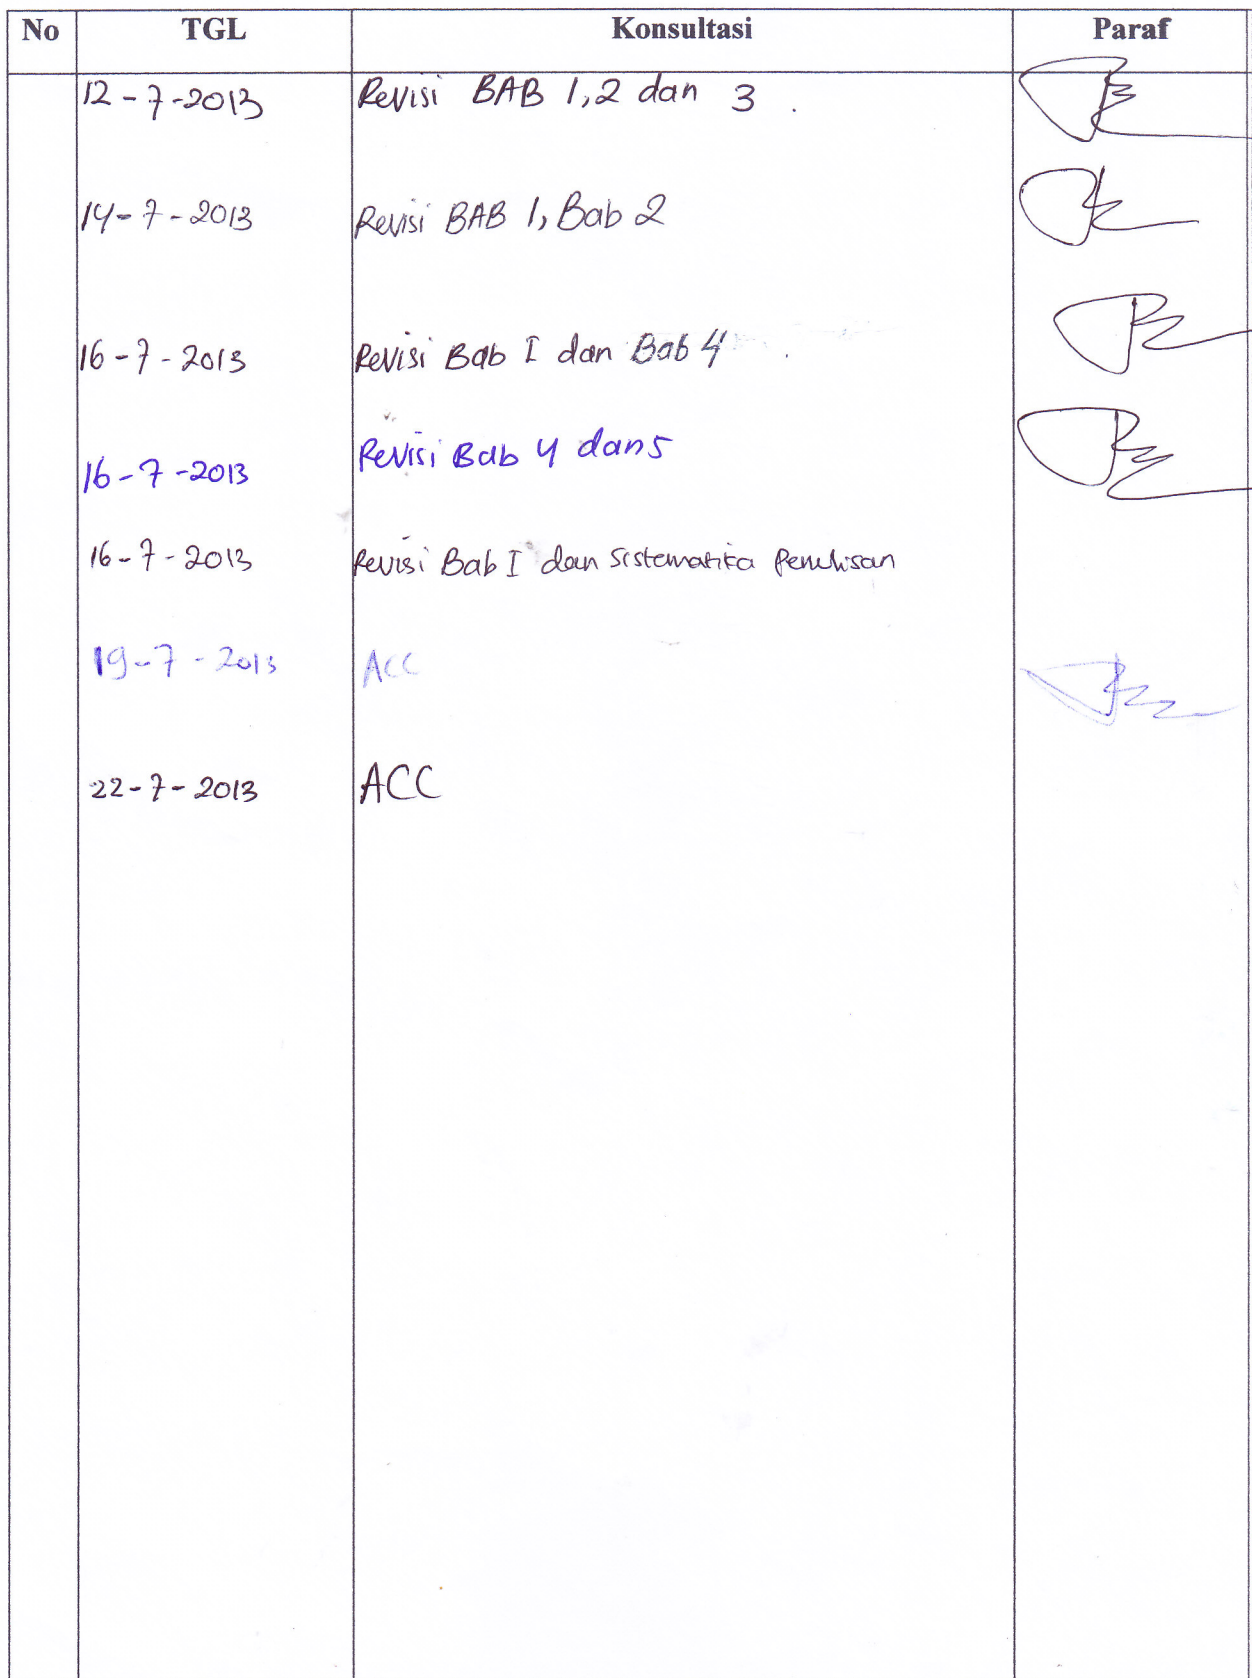 No TGL Konsultasi Paraf
12-7-2013 Revisi BAB 1,2 dan 3 .
14-7-2013 Revisi BAB 1, Bab 2
16-7-2013 Revisi Bab I dan Bab 4 .
16-7-2013 Revisi Bab 4 dan 5
16-7-2013 Revisi Bab I dan Sistematika Penulisan
19-7-2013 ACC
22-7-2013 ACC